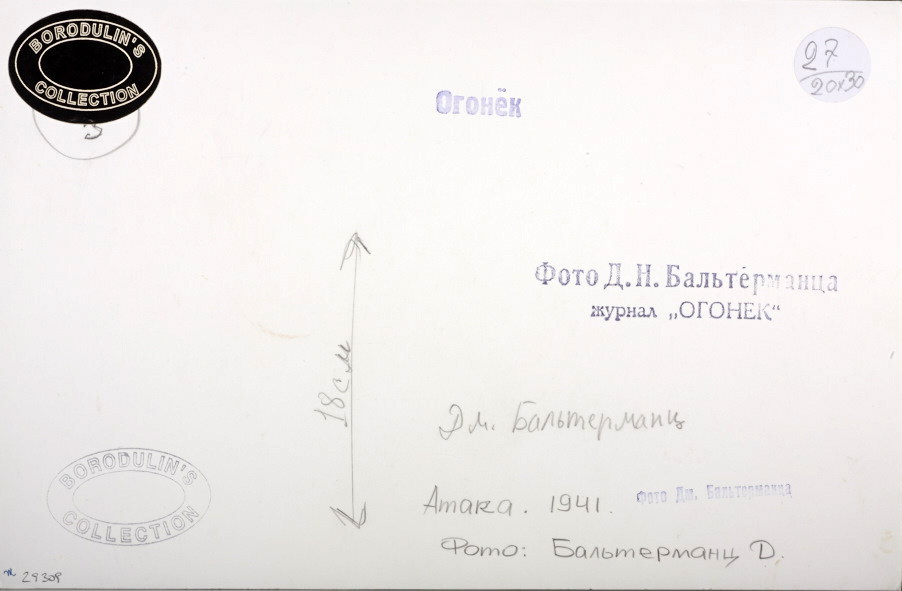 BORODULIN'S
COLLECTION
3
27
20x30
Огонёк
Фото Д. Н. Бальтерманца
журнал „ОГОНЕК“
18 см
Дм. Бальтерманц
Атака. 1941.
Фото Дм. Бальтерманца
Фото: Бальтерманц Д.
BORODULIN'S
COLLECTION
29309